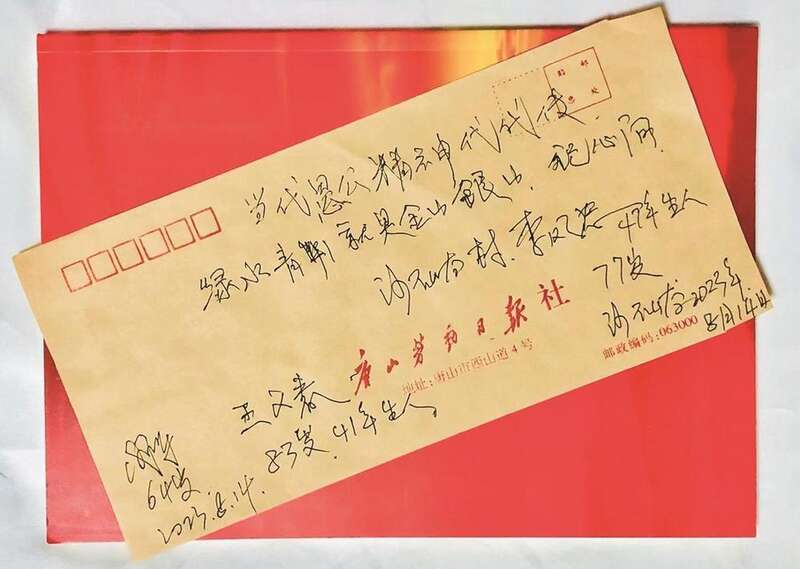 贴 邮
票 处
当代愚公精神代代传
绿水青山就是金山银山,
沙石峪村, 李凤忠 47年生人
77岁
沙石峪2023年
8月14日
唐山劳动日报社
地址:唐山市西山道4号
邮政编码:063000
83岁, 41年生人
64岁
2023.8.14.